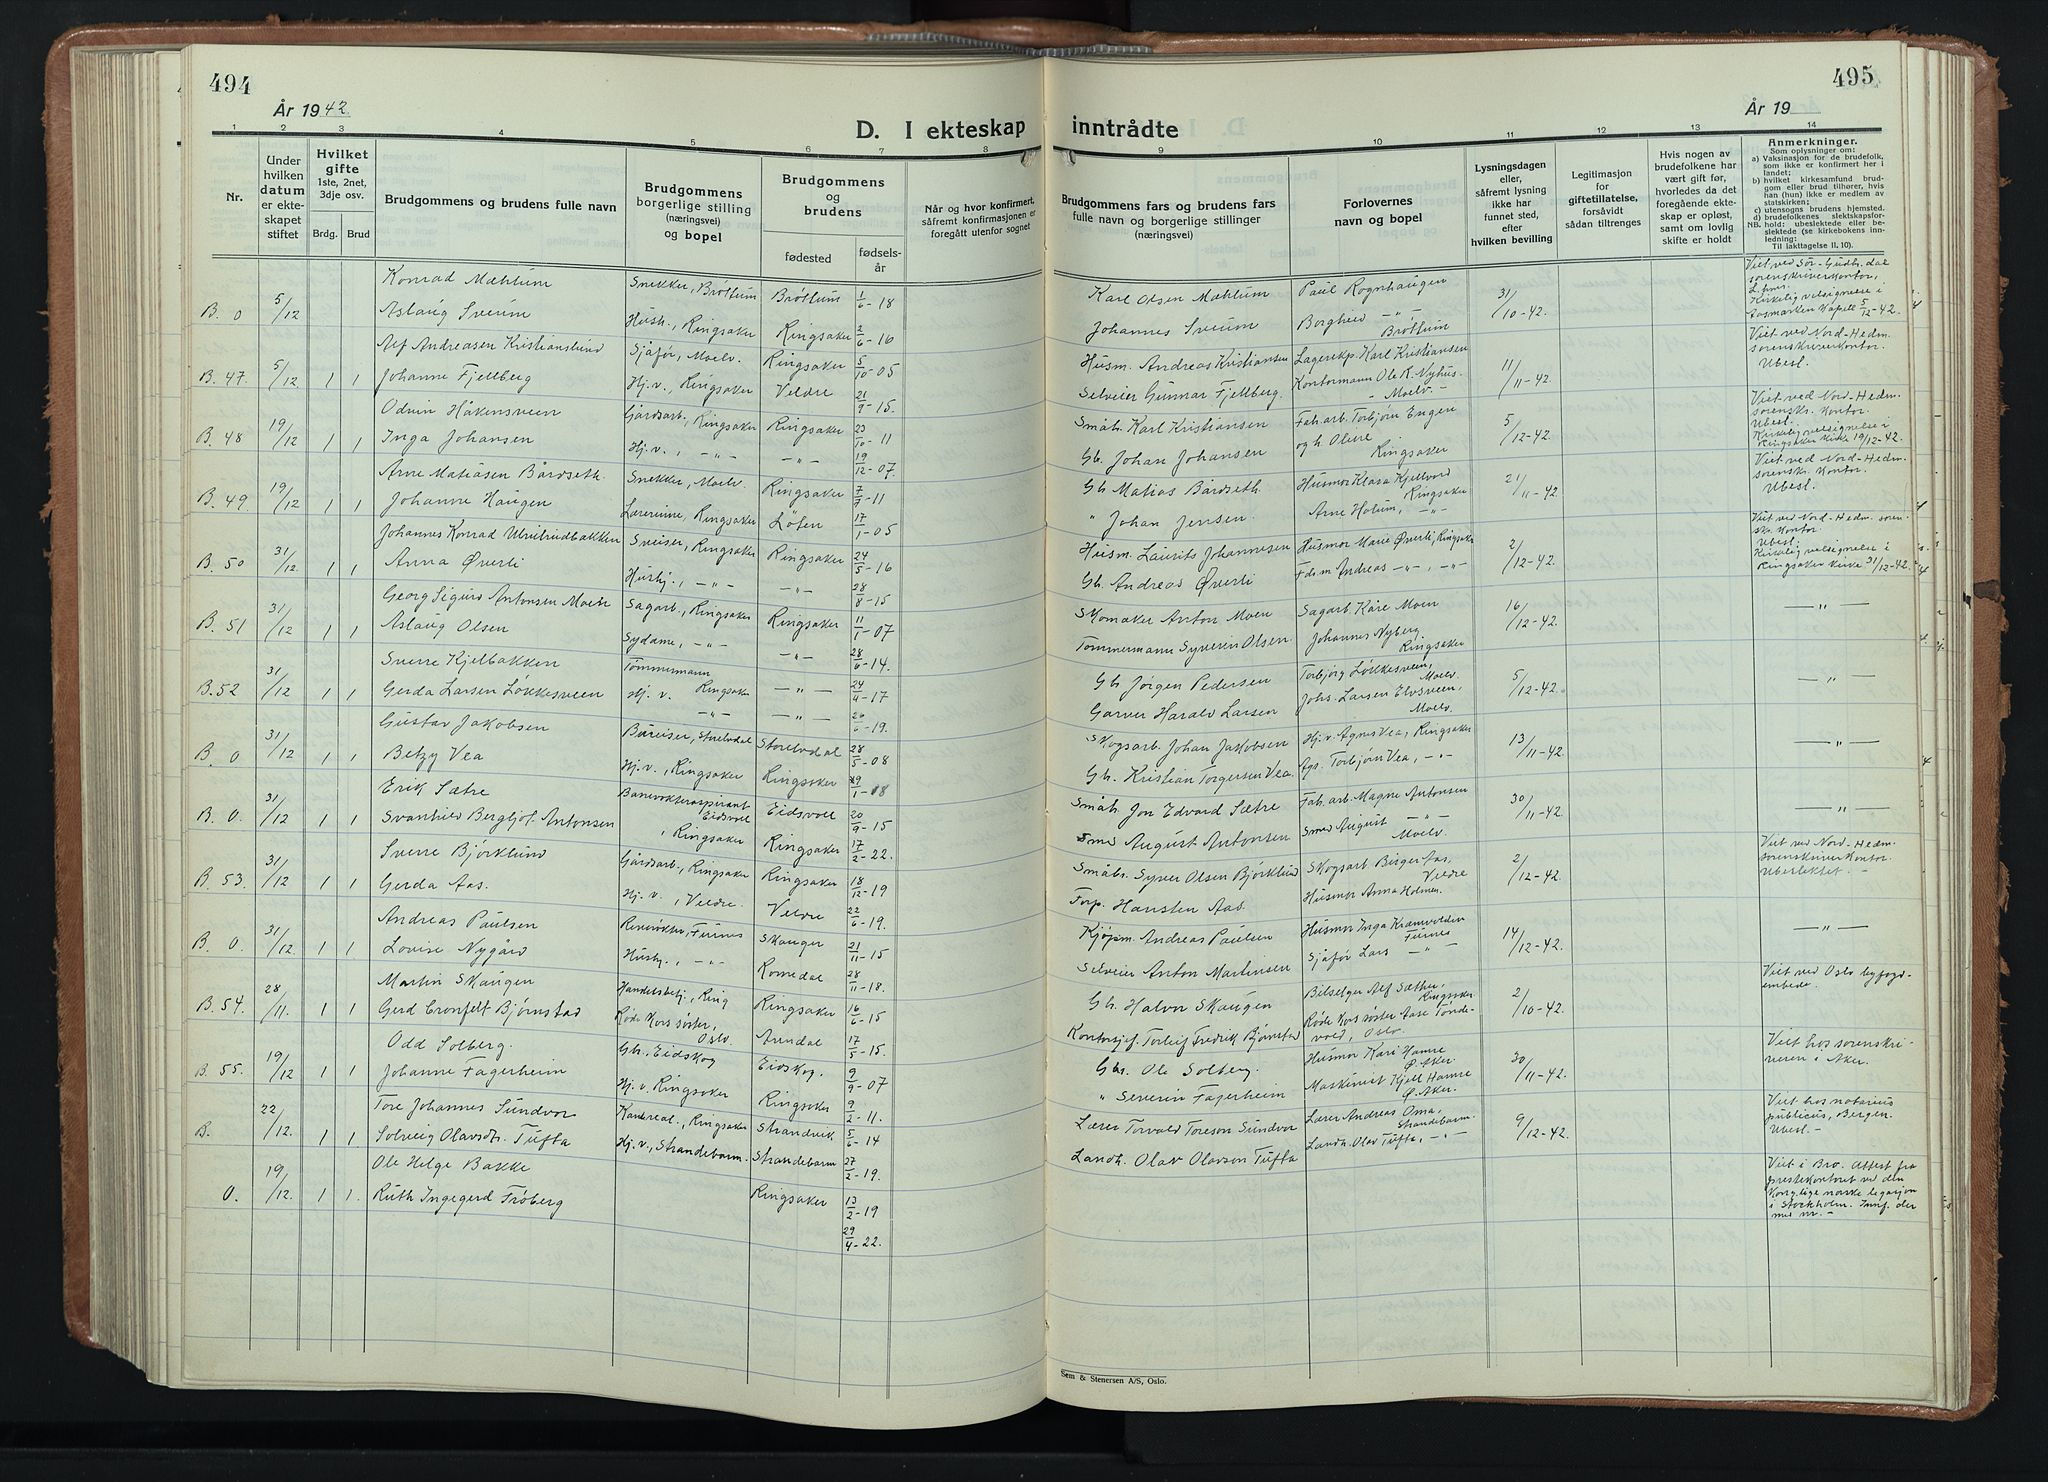 494
År 1942
D. I ekteskap
1
2
3
4
5
6
7
8
Nr.
Under hvilken datum er ekteskapet stiftet
Hvilket gifte 1ste, 2net, 3dje osv.
Brdg.
Brud
Brudgommens og brudens fulle navn
Brudgommens borgerlige stilling (næringsvei) og bopel
Brudgommens og brudens
fødested
fødselsår
Når og hvor konfirmert, såfremt konfirmasjonen er foregått utenfor sognet
Konrad Mæhlum Snekker, Brøttum Brøttum 1/6-18
B. 0 5/12 Aslaug Sveum Hush., Ringsaker Ringsaker 2/6-16
Alf Andreasen Kristianslund Sjåfør, Moelv. Ringsaker 5/10-05
B. 47. 5/12 1 1 Johanne Fjellberg Hj.v., Ringsaker Veldre 21/9-15.
Odvin Håkensveen Gårdsarb., Ringsaker Ringsaker 23/10-11
B. 48 19/12 1 1 Inga Johansen Hj.v., -"- -"- 19/12-07
Arne Matiasen Bårdseth. Snekker, Moelv. Ringsaker 7/9-11
B. 49 19/12 1 1 Johanne Haugen Lærerinne, Ringsaker Løten 17/1-05
Johannes Konrad Ulvilrudbakken Sveiser, Ringsaker Ringsaker 24/5-16
B. 50 31/12 1 1 Anna Øverli Hushj., -"- -"- 28/8-15
Georg Sigurd Antonsen Moen Sagarb., Ringsaker Ringsaker 11/1-07
B. 51 31/12 1 1 Aslaug Olsen Sydame, -"- -"- 28/6-14.
Sverre Kjelbakken Tømmermann Ringsaker -"- 24/4-17
B. 52 31/12 1 1 Gerda Larsen Løkkesveen Hj. v. -"- -"- 26/6-19.
Gustav Jakobsen Bureiser, Storelvdal Storelvdal 28/5-08
B. 0 31/12 1 1 Betzy Vea Hj.v., Ringsaker Ringsaker 29/1-08
Erik Sætre Banevokteraspirant Eidsvoll Eidsvoll 20/9-15
B. 0. 31/12 1 1 Svanhild Bergljot Antonsen , Ringsaker Ringsaker 17/2-22.
Sverre Bjørklund Gårdsarb., Ringsaker Ringsaker 18/12-19
B. 53. 31/12 1 1 Gerda Aas. Hj. v., Veldre. Veldre 22/6-19.
Andreas Paulsen Revevokter, Furnes Skauger 21/11-15
B. 0. 31/12 1 1 Lovise Nygård Hushj., -"- Romedal 28/11-18.
Martin Skaugen Handelsbetj., Ring Ringsaker 16/6-15
B. 54. 28/11. 1 1 Gerd Cronfelt Bjørnstad Røde Kors søster, Oslo. Arendal 17/5-15.
Odd Solberg. Gbr., Eidskog Eidskog. 9/9-07
B. 55. 19/12 1 1 Johanne Fagerheim Hj. v. Ringsaker Ringsaker 9/2-11.
Tore Johannes Sundvor Kand.real., Ringsaker Strandvik 5/6-14
B. 22/12. 1 1 Solveig Olavsdt. Tufta Hj. v., Strandebarm. Strandebarm 27/2-19.
Ole Helge Bakke Ringsaker 13/2-19
0. 19/12. 1 1. Ruth Ingegerd Frøberg 29/4-22.
495
År 19
inntrådte
9
10
11
12
13
14
Brudgommens fars og brudens fars fulle navn og borgerlige stillinger (næringsvei)
Forlovernes navn og bopel
Lysningsdagen eller, såfremt lysning ikke har funnet sted, efter hvilken bevilling
Legitimasjon for giftetillatelse, forsåvidt sådan tiltrenges
Hvis nogen av brudefolkene har vært gift før, hvorledes da det foregående ekteskap er opløst, samt om lovlig skifte er holdt
Anmerkninger.
Som oplysninger om:
a) Vaksinasjon for de brudefolk, som ikke er konfirmert her i landet;
b) hvilket kirkesamfund brudgom eller brud tilhører, hvis han (hun) ikke er medlem av statskirken;
c) utensogns brudens hjemsted.
d) brudefolkenes slektskapsforhold: ubeslektede eller beslektede (se kirkebokens innledning: Til iakttagelse II, 10).
NB.
Karl Olsen Mæhlum Paul Rognhaugen 31/10-42. Viet ved Sør-Gudbr.dal sorenskriverkontor, L.hmr.
Johannes Sveum Borghild -"- Brøttum Kirkelig velsignelse i Aasmarken Kapell 5/12-42.
Husm. Andreas Kristiansen Lagereksp. Karl Kristiansen 11/11-42. Viet ved Nord-Hedm. sorenskriverkontor. Ubesl.
Selveier Gunnar Fjellberg. Kontormann Ole K. Nyhus. - Moelv. -
Småbr. Karl Kristiansen Fab.arb. Torbjørn Engen 5/12-42. Viet ved Nord-Hedm. sorenskr. kontor. Ubesl.
Gb. Johan Johansen og h. Olene Ringsaker Kirkelig velsignelse i Ringsaker kirke 19/12-42.
Gb. Matias Bårdseth. Husmor Klara Kjellvord Ringsaker 21/11-42. Viet ved Nord-Hedm. sorenskr. kontor. Ubesl.
" Johan Jensen. Arne Holum, -"-
Husm. Laurits Johannesen Husmor Marie Øverli, Ringsaker 2/12-42. Viet ved Nord-Hedm. sorenskr. kontor. Ubesl.
Gb. Andreas Øverli Fds.m Andreas -"-, -"- Kirkelig velsignelse i Ringsaker kirke 31/12-42.
Skomaker Anton Moen Sagarb. Kåre Moen 16/12-42. -"-
Tømmermann Syverin Olsen. Johannes Nyberg Ringsaker
Gb. Jørgen Pedersen Torbjørg Løkkesveen, Moelv. 5/12-42. -"-
Garver Harald Larsen Johs. Larsen Elvsveen, Moelv.
Skogsarb. Johan Jakobsen Hj.v. Agnes Vea, Ringsaker 13/11-42. -"-
Gb. Kristian Torgersen Vea. Ags. Torbjørn Vea, -"-
Småbr. Jon Edvard Sætre Fab.arb. Magne Antonsen 30/11-42. -"-
Smed August Antonsen Smed August -"- Moelv.
Småbr. Syver Olsen Bjørklund Skogsarb. Birger Aas, Veldre 2/12-42. Viet ved Nord-Hedm. sorenskriverkontor. Ubeslektet. -
Forp. Hansten Aas. Husmor Anna Holmen.
Kjøpm. Andreas Paulsen Husmor Inga Kramvolden Furnes 14/12-42. -"-
Selveier Anton Martinsen Sjåfør Lars -"-
Gb. Halvor Skaugen Bilselger Alf Sæther, Ringsaker. 2/10-42. Viet ved Oslo byfogdembede.
Kontorsjef. Torleif Fredrik Bjørnstad Røde Kors søster Aase Tøndevold, Oslo.
Gbr. Ole Solberg. Husmor Kari Hamre Ø. Aker. 30/11-42. Viet hos sorenskriveren i Aker.
" Severin Fagerheim Maskinist Kjell Hamre Ø. Aker.
Lærer Torvald Toreson Sundvor Lærer Andreas Oma, Strandebarm. 9/12-42. Viet hos notarius publicus, Bergen. Ubesl. -
Landh. Olav Olavson Tufta Landh. Olav Tufta, -"-
Viet i Bro. Attest fra prestekontoret ved den Kong.lige norske legasjon i Stockholm. Innf. der med nr. -
Sem & Stenersen A/S, Oslo.